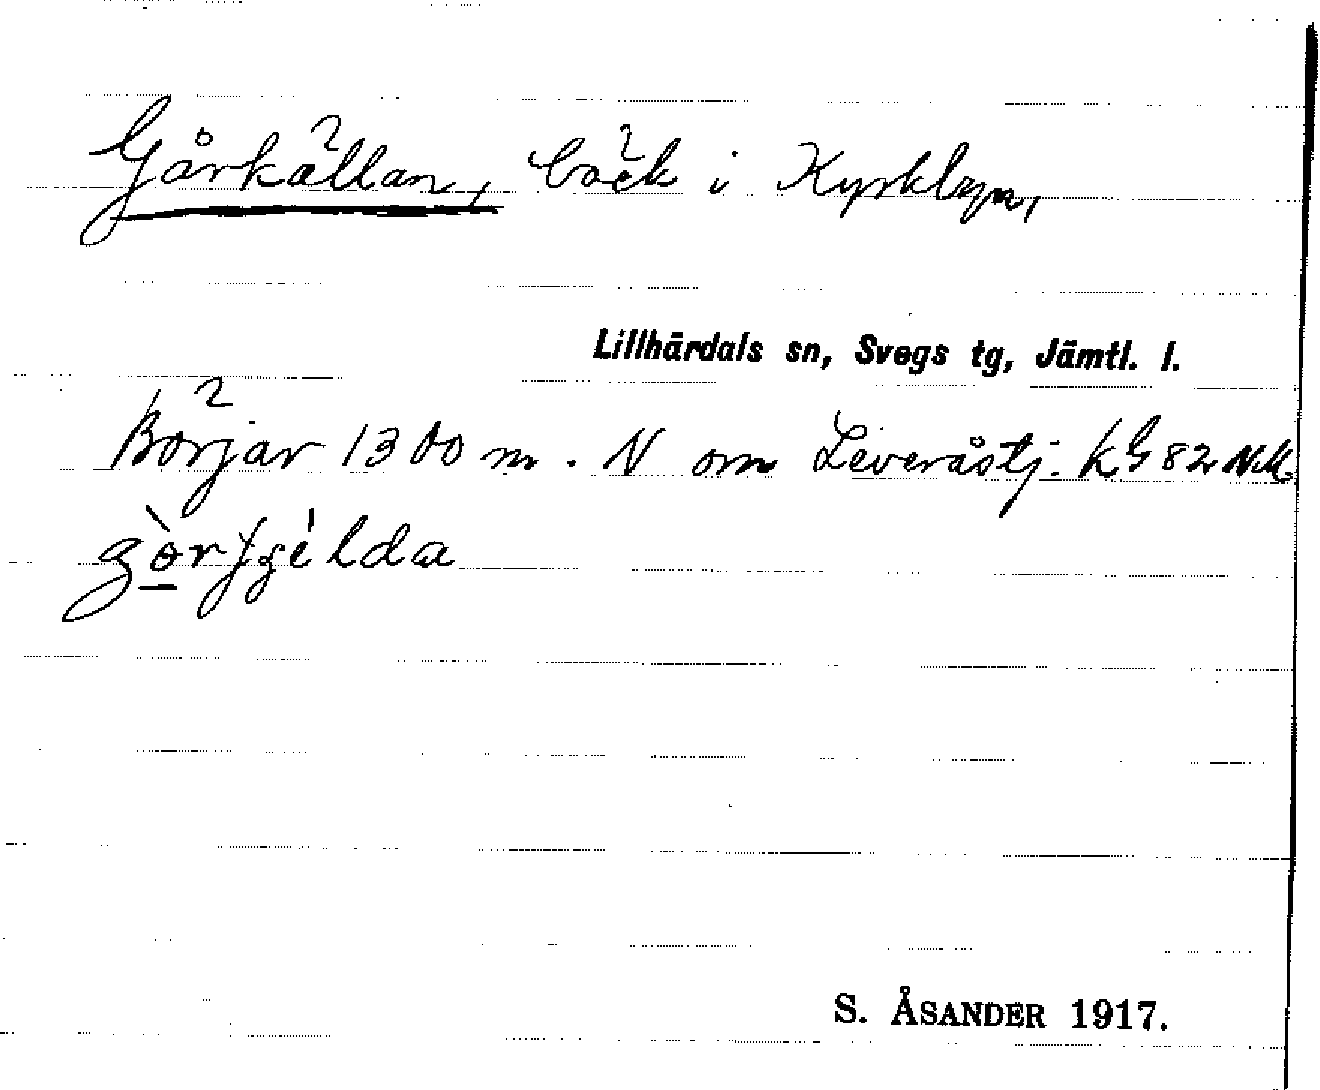 Gårkällan, bäck i Kyrkbyn,
Lillhärdals sn, Svegs tg, Jämtl. l.
Börjar 1300 m. N om Leveråstj. kG 82 NM.
S. ÅSANDER 1917.